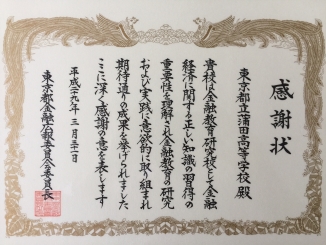 感謝状
東京都立蒲田高等学校 殿
貴校は金融教育研究校として金融
経済に関する正しい知識の習得の
重要性を理解され金融教育の研究
および実践に意欲的に取り組まれ
期待通りの成果を挙げられました
ここに深く感謝の意を表します
平成二十九年 三月 三十一日
東京都金融広報委員会委員長